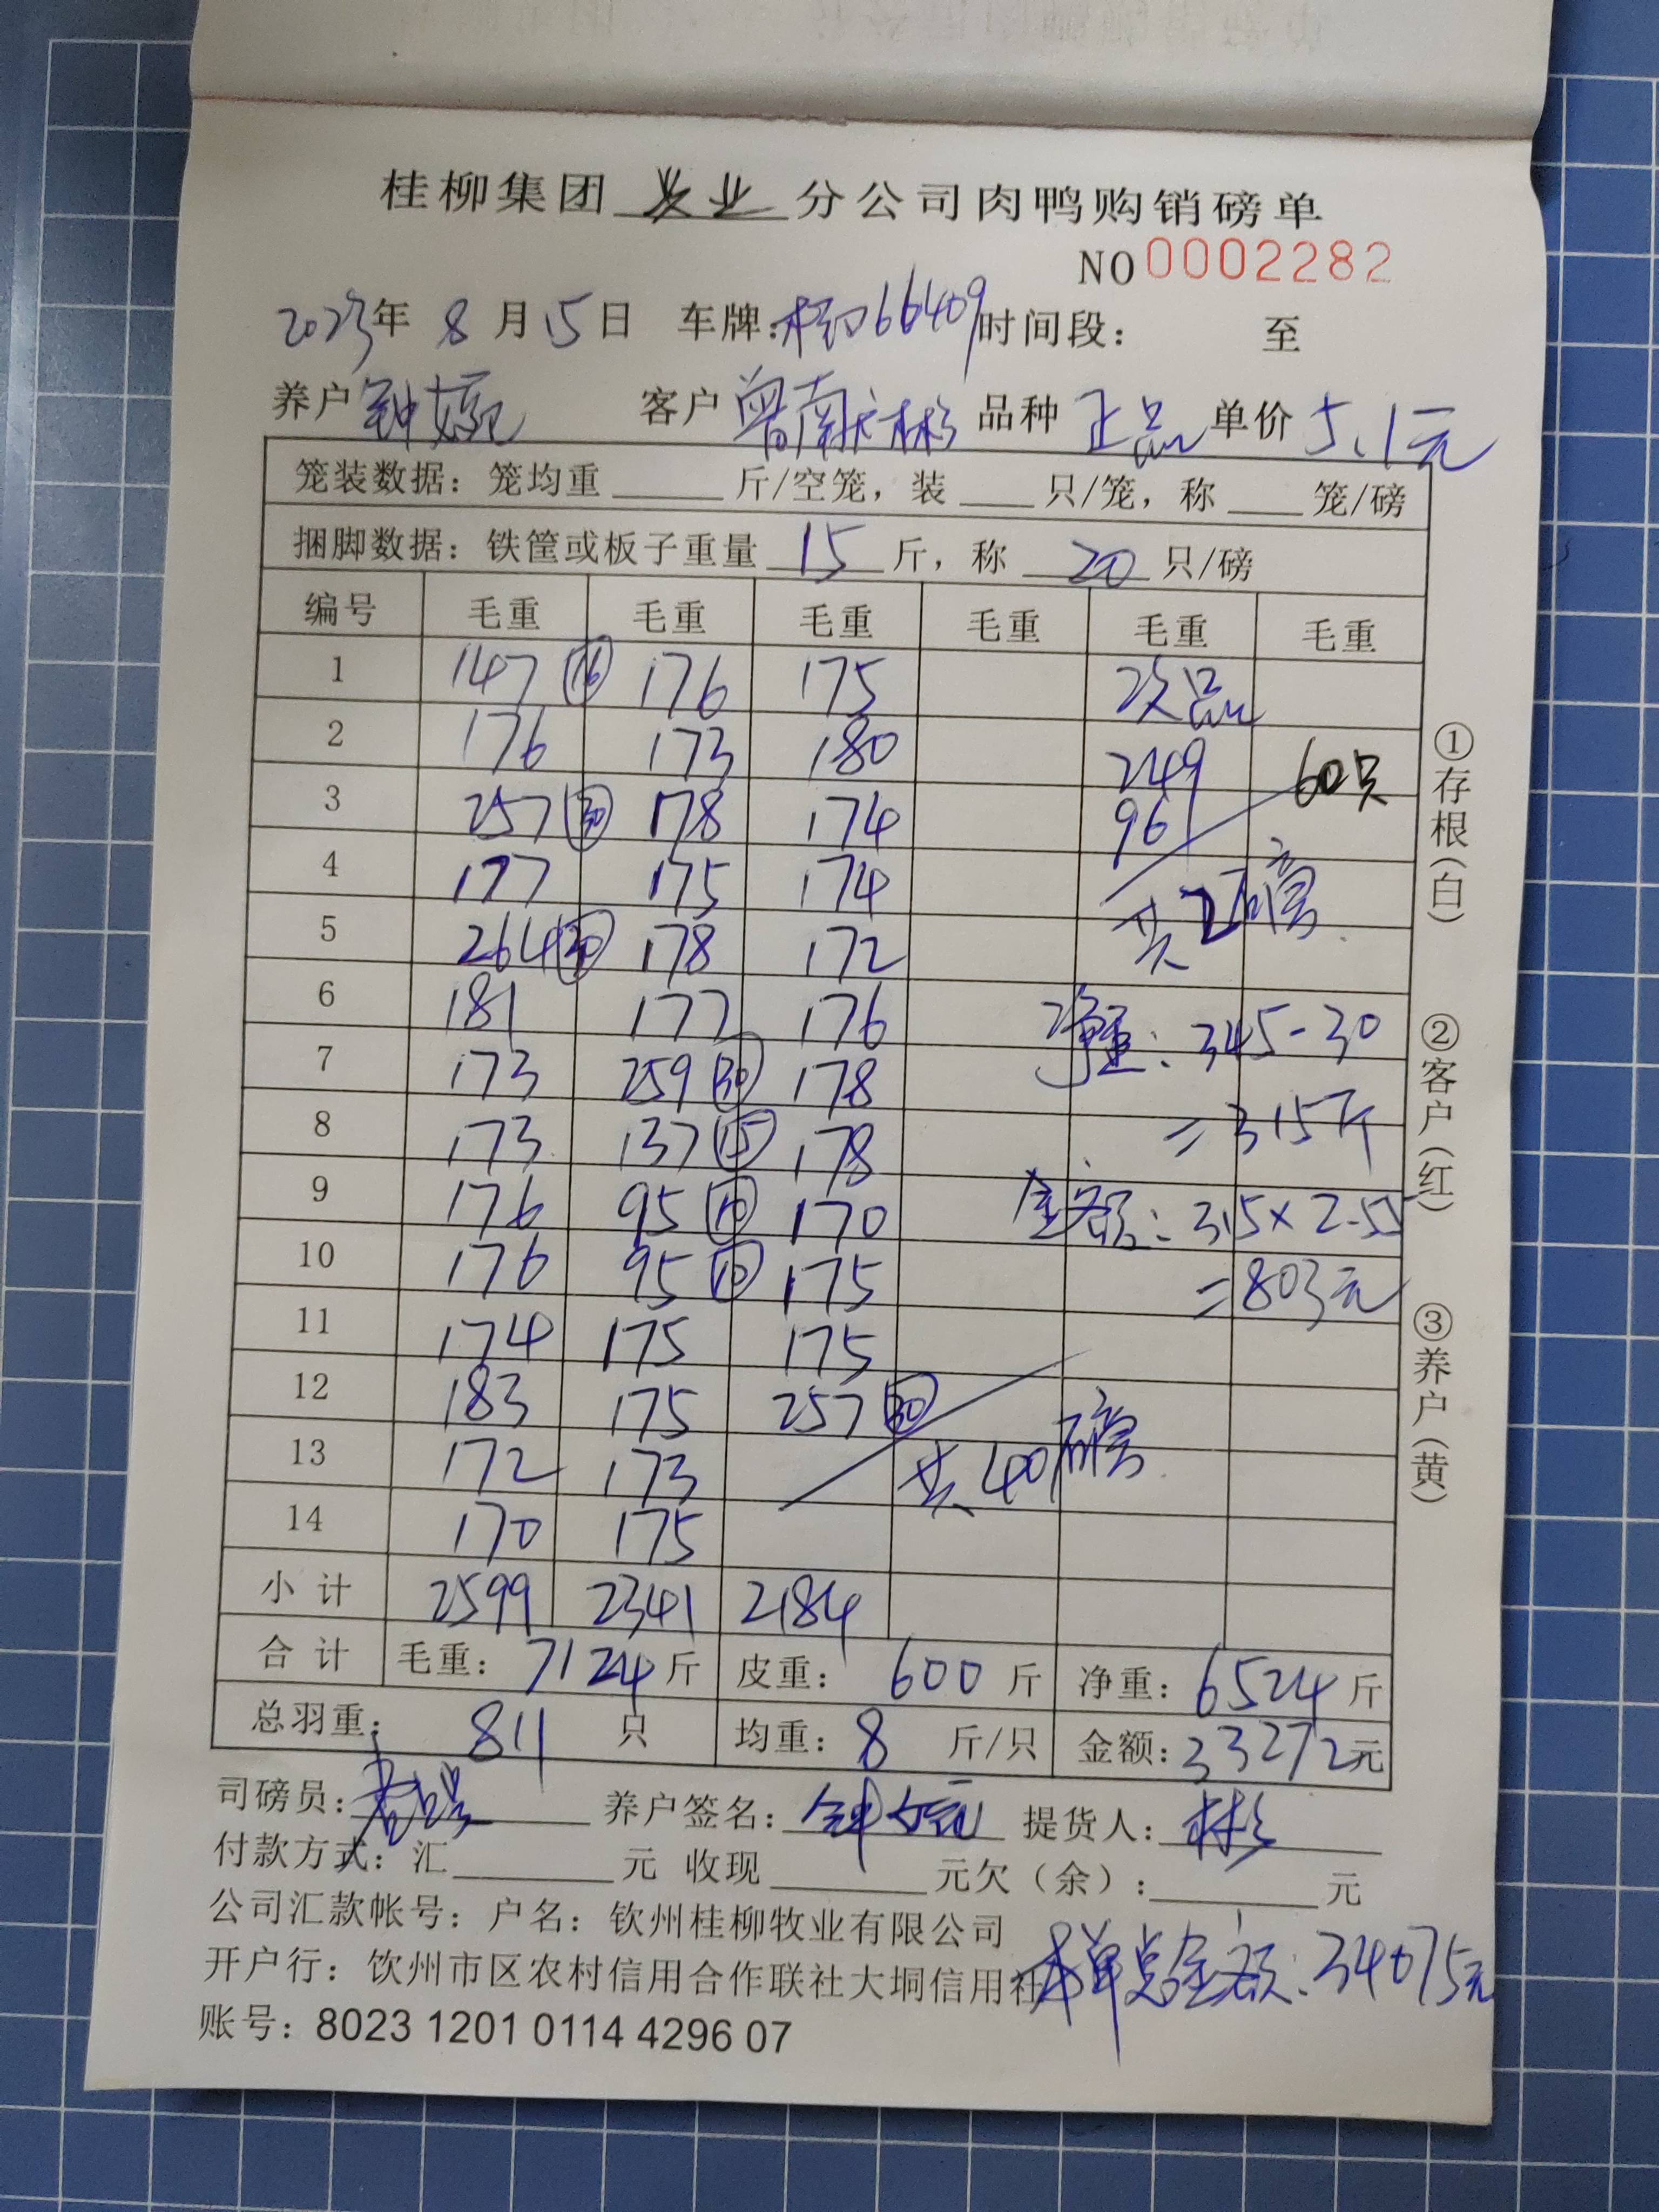 桂柳集团 牧业 分公司肉鸭购销磅单
NO 0002282
2023年 8 月 15 日 车牌: 66409 时间段: 至
养户 钟婉 客户 曾南 彬 品种 正品 单价 5.1元
笼装数据: 笼均重 斤/空笼, 装 只/笼, 称 笼/磅
捆脚数据: 铁筐或板子重量 15 斤, 称 20 只/磅
编号 毛重 毛重 毛重 毛重 毛重 毛重
1 147 16 176 175 次品
2 176 173 180 249 60只
3 257 30 178 174 96
4 177 175 174 共2磅
5 264 30 178 172
6 181 177 176 净重: 345-30
7 173 259 30 178
=315斤
8 173 137 15 178
9 176 95 10 170 金额: 315×2.55
10 176 95 10 175 =803元
11 174 175 175
12 183 175 257 30
13 172 173 共40磅
14 170 175
小计 2599 2341 2184
合计 毛重: 7124 斤 皮重: 600 斤 净重: 6524 斤
总羽重: 811 只 均重: 8 斤/只 金额: 33272元
司磅员: 养户签名: 钟婉 提货人: 彬
付款方式: 汇 元 收现 元欠(余): 元
公司汇款帐号: 户名: 钦州桂柳牧业有限公司
开户行: 钦州市区农村信用合作联社大垌信用社
本单总金额: 34075元
账号: 8023 1201 0114 4296 07
①存根(白)
②客户(红)
③养户(黄)